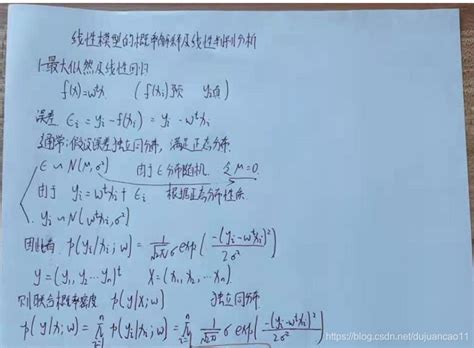 线性模型的概率解释及线性判别分析
1.最大似然及线性回归
f(x)=wᵗx (f(xᵢ)预 yᵢ真)
误差 ϵᵢ = yᵢ - f(xᵢ) = yᵢ - wᵗxᵢ
通常:假设误差独立同分布,满足正态分布.
ϵ ∼ N(μ, σ²) 由于ϵ分布随机, 令μ=0.
由于 yᵢ = wᵗxᵢ + ϵᵢ 根据正态分布性质
yᵢ ∼ N(wᵗxᵢ, σ²)
因此有 p(yᵢ|xᵢ;w) = 1/√2π σ exp(-(yᵢ-wᵗxᵢ)²/2σ²)
y=(y₁, y₂ ⋯ yₙ)ᵗ X=(x₁, x₂, ⋯ xₙ).
则联合概率密度 p(y|x;w) 独立同分布
p(y|x;w) = ∏ⁿᵢ₌₁ p(yᵢ|xᵢ;w) = ∏ⁿᵢ₌₁ 1/√2π σ exp(-(yᵢ-wᵗxᵢ)²/2σ²)
https://blog.csdn.net/dujuancao11